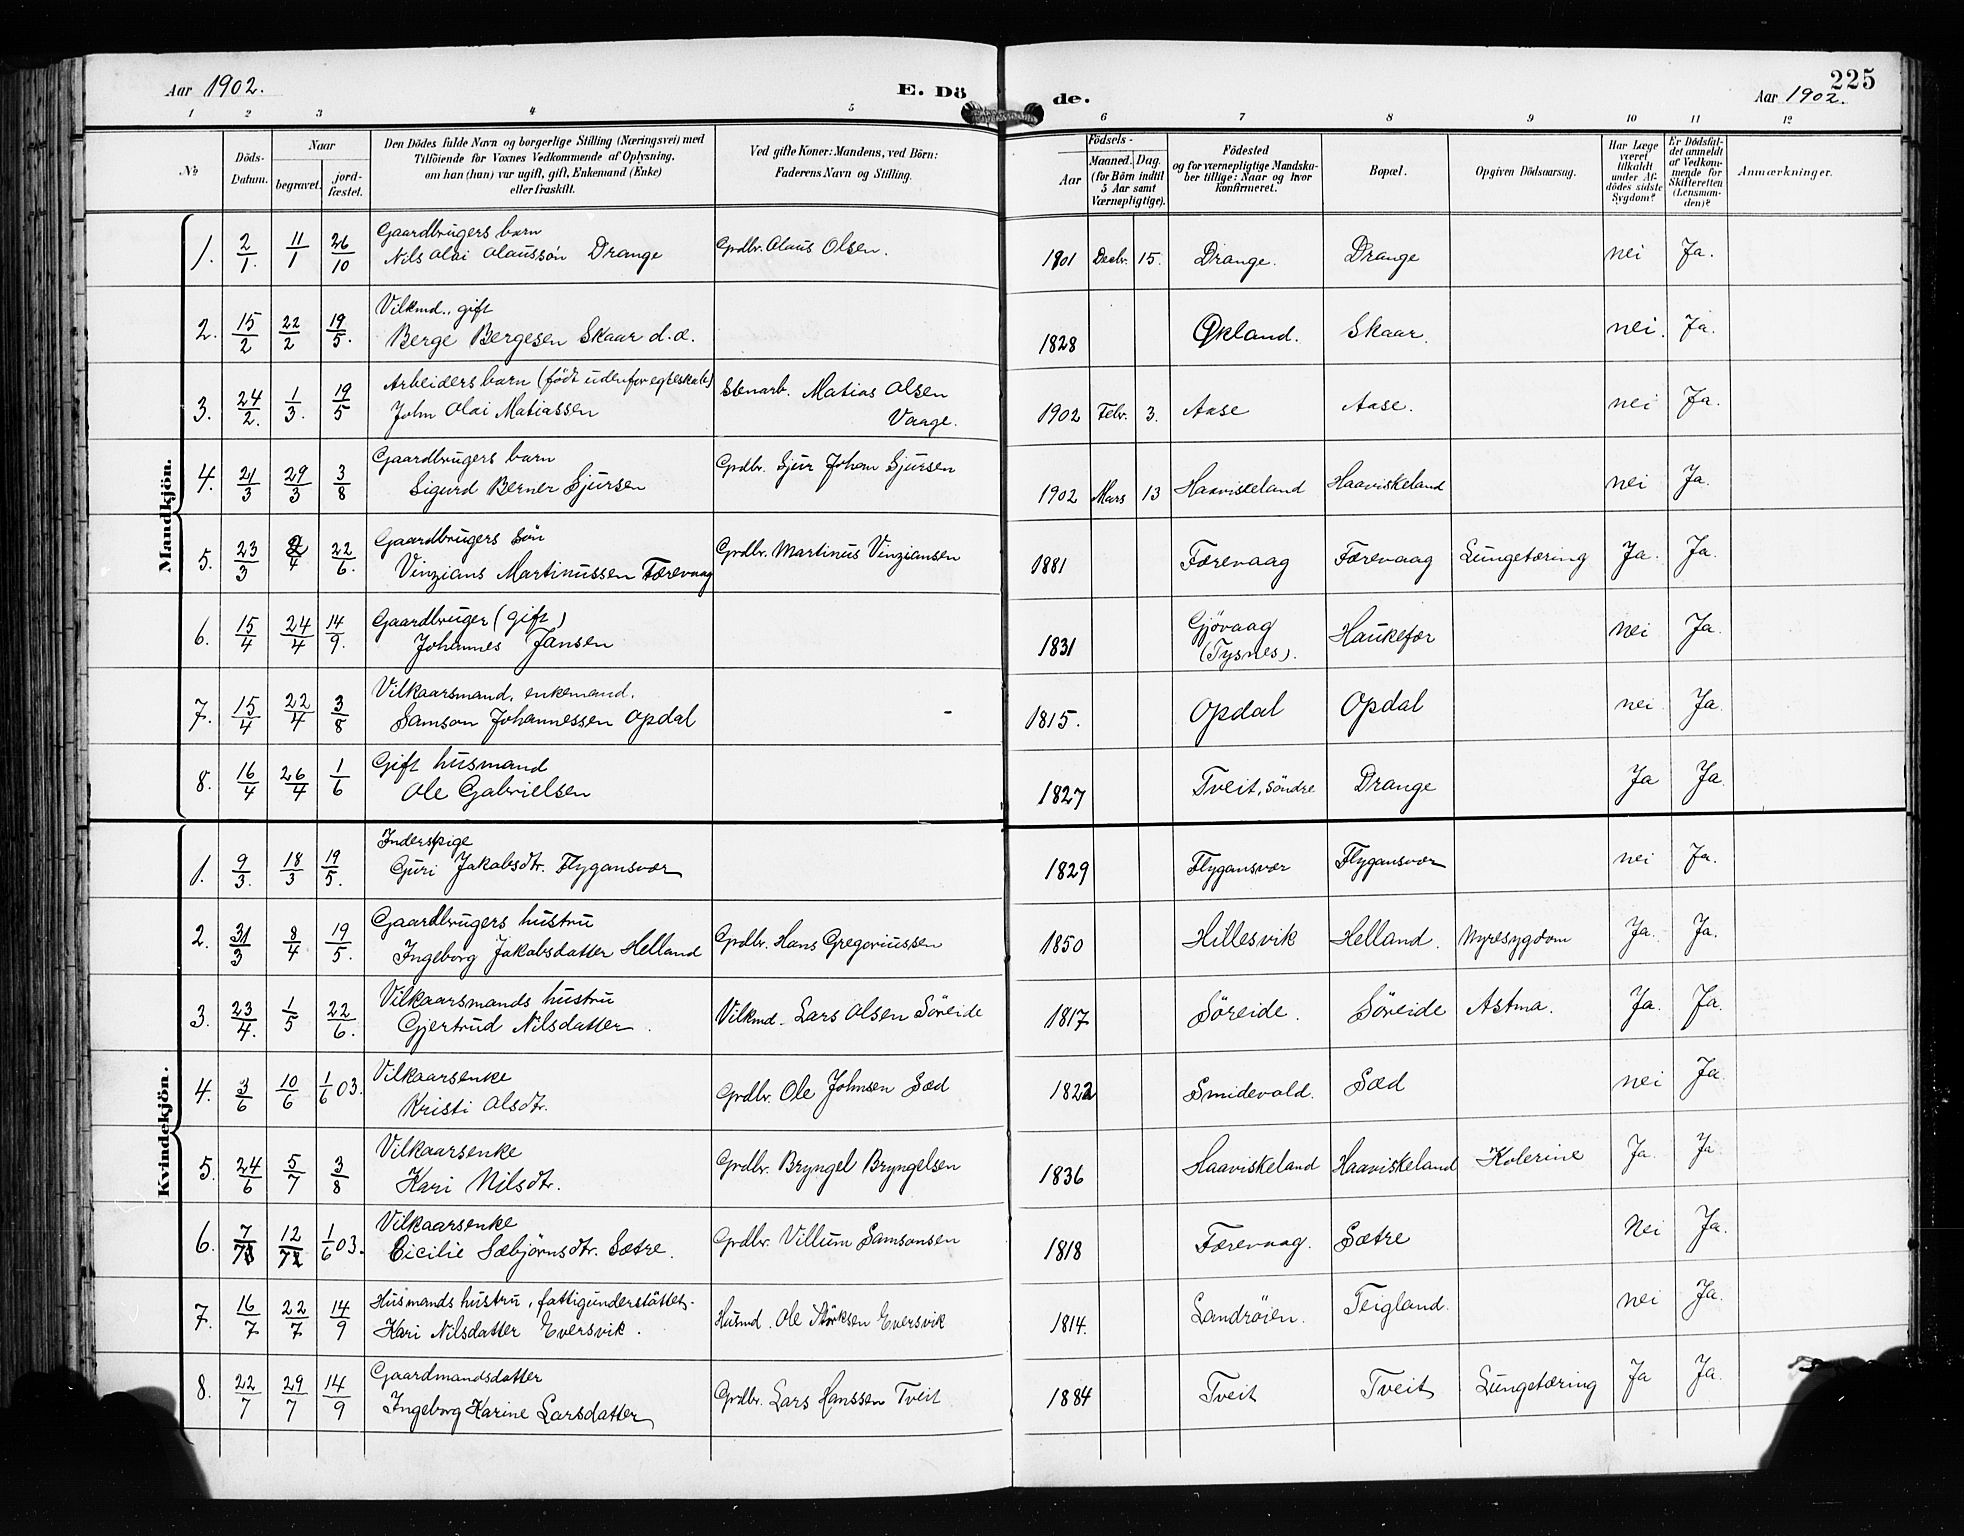 Aar 1902.
E. Dö
de.
225
Aar 1902.
1 2 3 4 5 6 7 8 9 10 11 12
No
Döds-
Datum.
Naar
begravet.
jord-
fæstet.
Den Dödes fulde Navn og borgerlige Stilling (Næringsvei) med
Tilföiende for Voxnes Vedkommende af Oplysning,
om han (hun) var ugift, gift, Enkemand (Enke)
eller fraskilt.
Ved gifte Koner: Mandens, ved Börn:
Faderens Navn og Stilling.
Födsels-
Aar
Maaned. Dag.
(for Börn indtil
5 Aar samt
Værnepligtige).
Födested
og for værnepligtige Mandska-
ber tillige: Naar og hvor
konfirmeret.
Bopæl.
Opgiven Dödsaarsag.
Har Læge
været
tilkaldt
under Af-
dödes sidste
Sygdom?
Er Dödsfal-
det anmeldt
af Vedkom-
mende for
Skifteretten
(Lensman-
den)?
Anmærkninger.
Mandkjön.
Gaardbrugers barn
1. 2/1. 11/1 26/10 Nils Olai Olaussön Drange Grdbr. Olaus Olsen. 1901 Decbr. 15. Drange. Drange nei Ja.
Vilkmd., gift
2. 15/2 22/2 19/5. Berge Bergesen Skaar d.e. 1828 Økland. Skaar. nei. Ja.
Arbeiders barn (födt udenfor egteskab) Stenarb. Matias Olsen
3. 24/2. 1/3. 19/5 John Olai Matiassen Vaage. 1902 Febr. 3. Aase Aase. nei Ja.
Gaardbrugers barn
4. 21/3 29/3 3/8 Sigurd Berner Sjursen Grdbr. Sjur Johan Sjursen 1902 Mars 13 Haaviskeland Haaviskeland nei Ja.
Gaardbrugers sön
5. 23/3 2/4 22/6. Vinzians Martinussen Færevaag Grdbr. Martinus Vinziansen 1881 Færevaag Færevaag Lungetæring Ja. Ja.
Gaardbruger (gift)
6. 15/4 24/4 14/9. Johannes Jansen 1831 Gjøvaag Haukefær nei Ja.
(Tysnes).
Vilkaarsmand, enkemand.
7. 15/4 22/4 3/8 Samson Johannessen Opdal - 1815. Opdal Opdal nei Ja
Gift husmand
8. 16/4 26/4 1/6 Ole Gabrielsen 1827 Tveit, Söndre Drange Ja Ja.
Kvindekjön.
Inderstpige
1. 9/3. 18/3 19/5. Guri Jakobsdtr. Flygansvær 1829 Flygansvær Flygansvær nei Ja.
Gaardbrugers hustru
2. 31/3 8/4 19/5. Ingeborg Jakobsdatter Helland Grdbr. Hans Gregoriussen 1850 Hillesvik Helland. Nyresygdom Ja. Ja.
Vilkaarsmands hustru
3. 23/4. 1/5 22/6. Gjertrud Nilsdatter. Vilkmd. Lars Olsen Söreide 1817 Söreide. Söreide Astma. Ja. Ja.
Vilkaarsenke
4. 3/6 10/6 1/6 03. Kristi Olsdtr. Grdbr. Ole Johnsen Sæd 1822 Smidevold. Sæd nei Ja
Vilkaarsenke
5. 24/6 5/7 3/8 Kari Nilsdtr. Grdbr. Bryngel Bryngelsen 1836 Haaviskeland Haaviskeland Kolerine Ja. Ja
Vilkaarsenke
6. 7/7 12/7 1/6 03. Cicilie Sæbjørnsdtr. Sætre. Grdbr. Villum Samsonsen 1818 Færevaag. Sætre Nei Ja.
Husmands hustru, fattigunderstöttet.
7. 16/7 22/7 14/9 Kari Nilsdatter Eversvik. Husmd. Ole Störksen Eversvik 1814. Sandvøien. Teigland. nei Ja.
Gaardmandsdatter
8. 22/7 29/7 14/9 Ingeborg Karine Larsdatter Grdbr. Lars Hanssen Tveit 1884 Tveit Tveit Lungetæring Ja Ja.